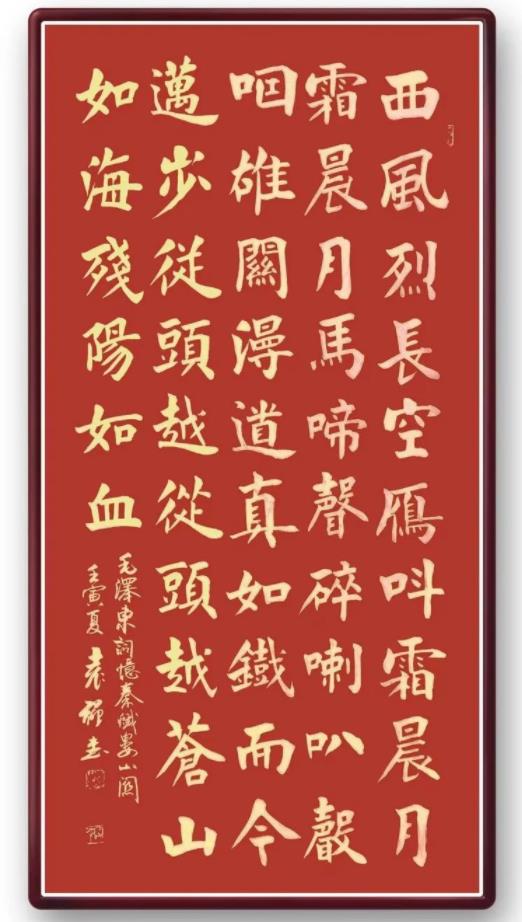 西風烈長空鴈呌霜晨月
霜晨月馬啼聲碎喇叭聲
咽雄關漫道真如鐵而今
邁步從頭越從頭越蒼山
如海殘陽如血
毛澤東詞憶秦娥婁山關
壬寅夏袁書